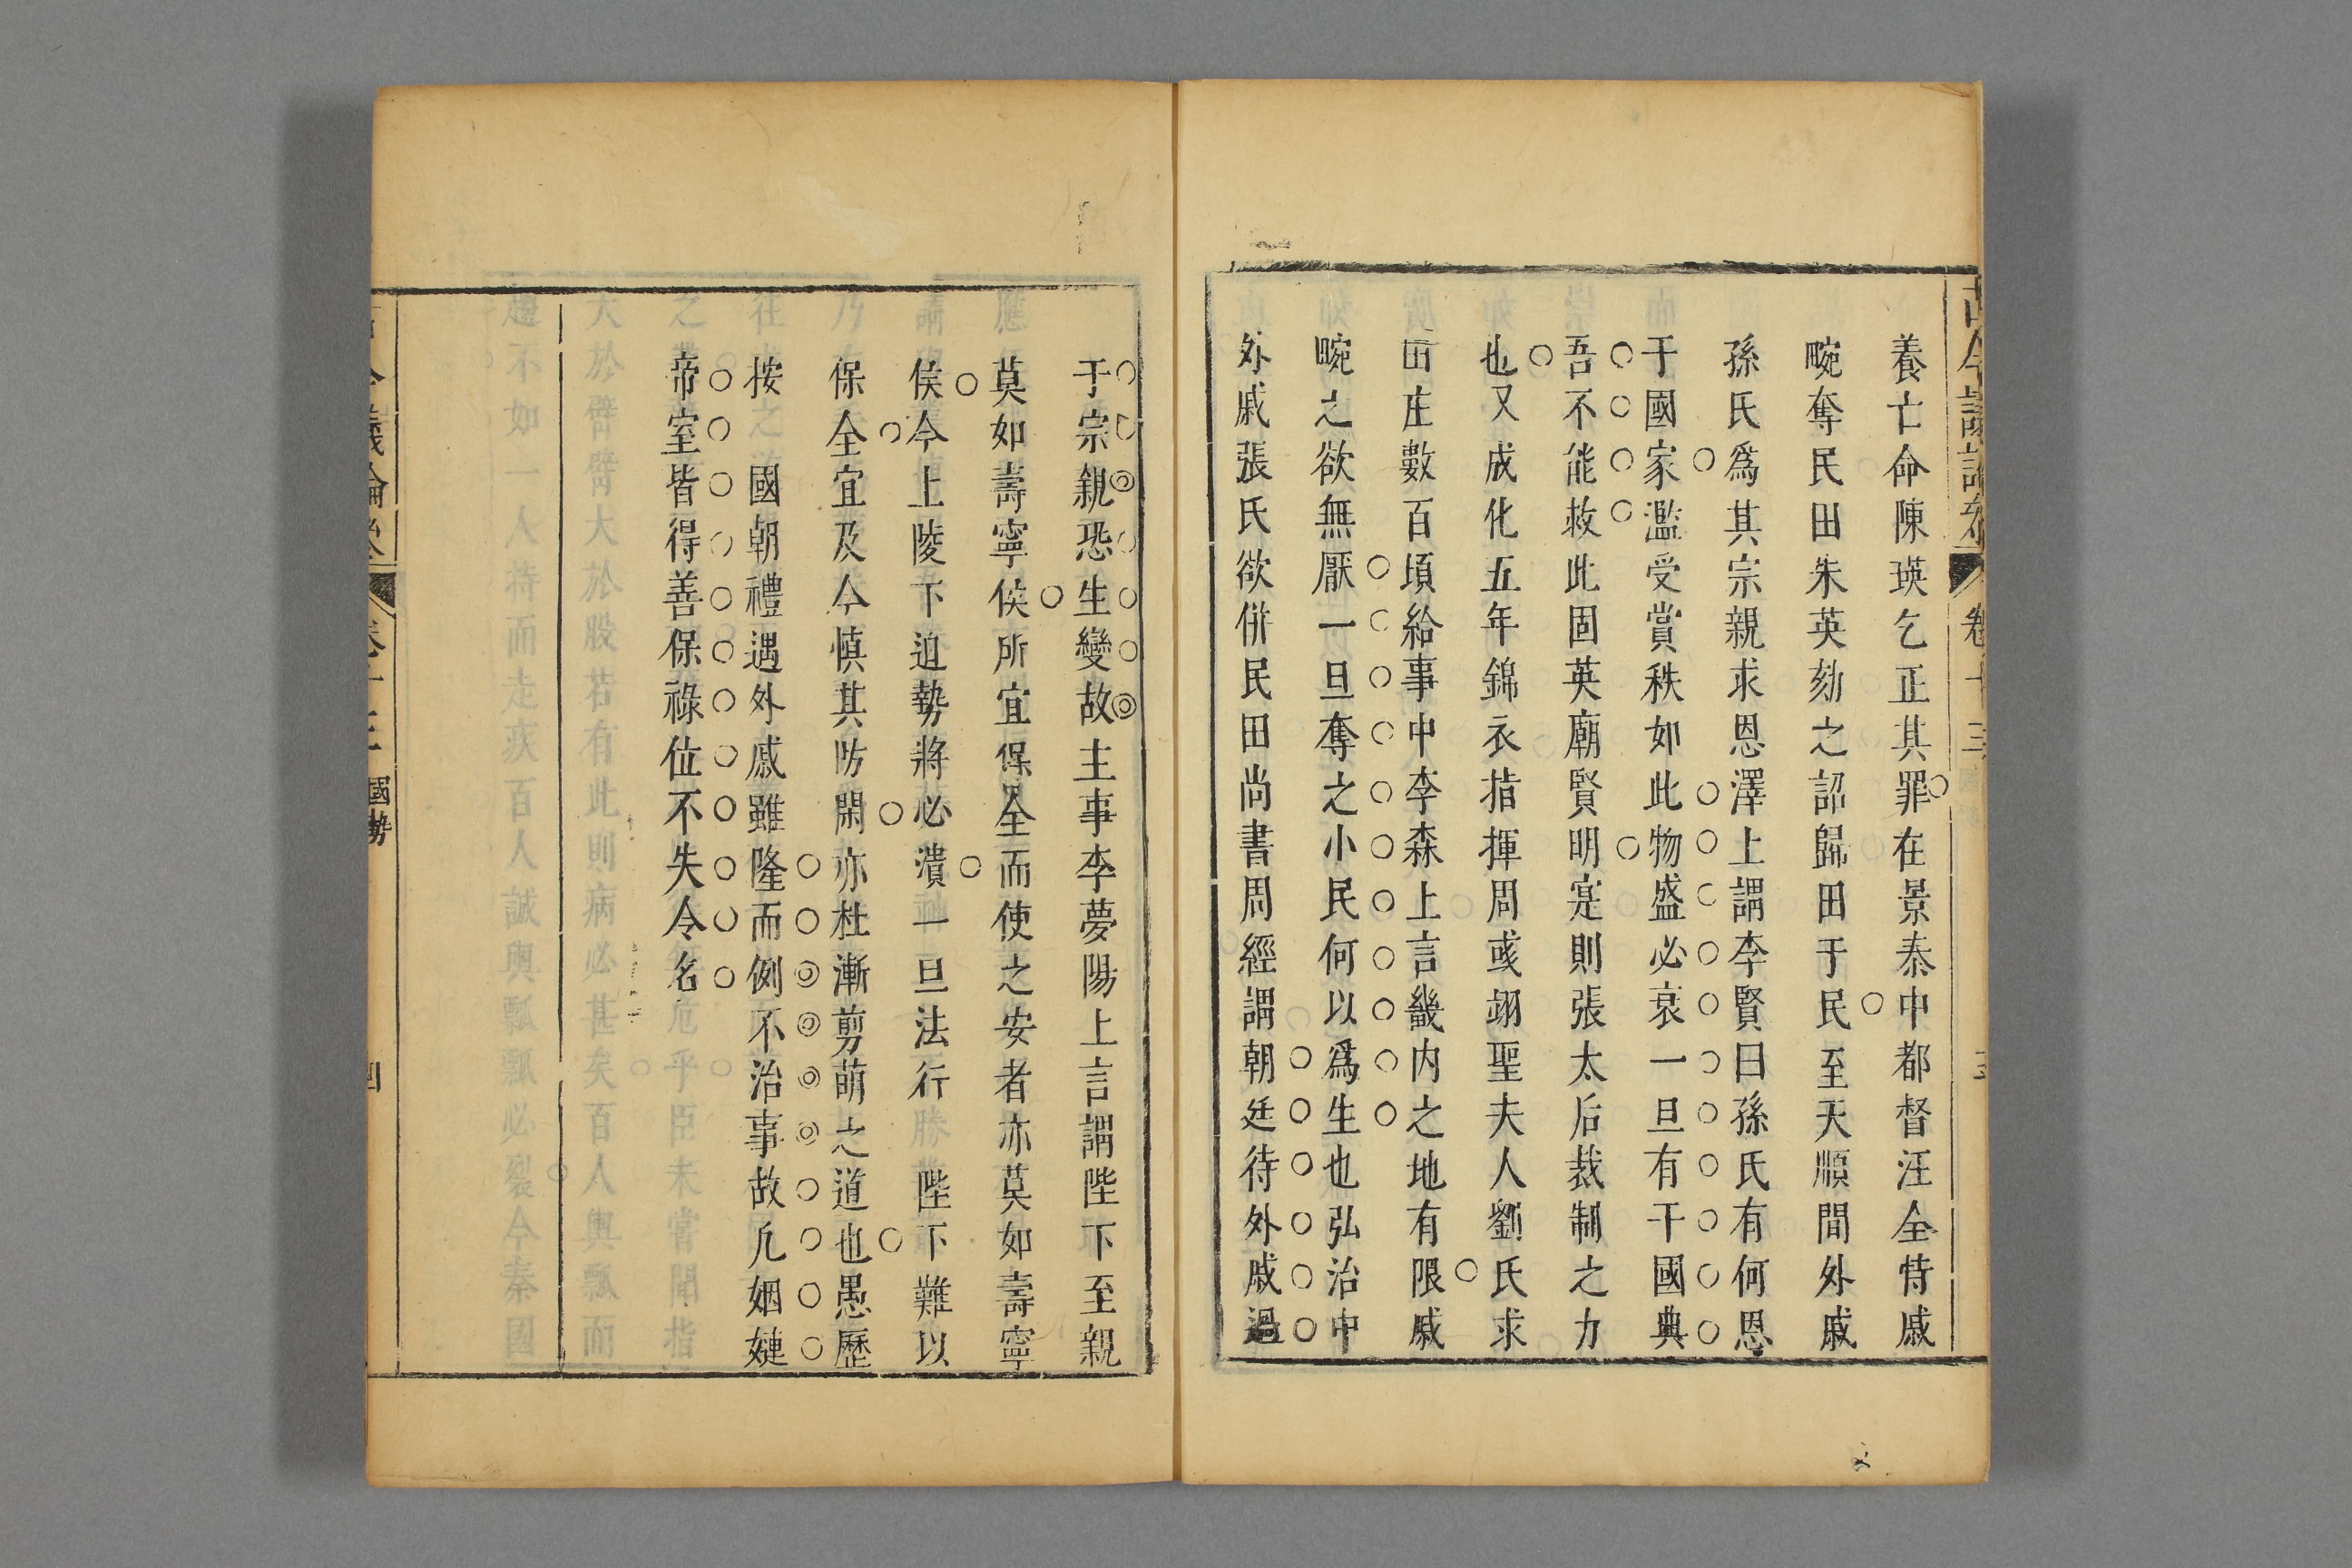 養亡命陳瑛乞正其罪在景泰中都督汪全恃戚
畹奪民田朱英劾之詔歸田于民至天順間外戚
孫氏爲其宗親求恩澤上謂李賢曰孫氏有何恩
于國家濫受賞秩如此物盛必衰一旦有干國典
吾不能救此固英廟賢明寔則張太后裁制之力
也又成化五年錦衣指揮周彧翊聖夫人劉氏求
田庄數百頃給事中李森上言畿内之地有限戚
畹之欲無厭一旦奪之小民何以爲生也弘治中
外戚張氏欲併民田尚書周經謂朝廷待外戚過
于宗親恐生變故主事李夢陽上言謂陛下至親
莫如壽寧侯所宜保全而使之安者亦莫如壽寧
侯今上陵下迫勢將必潰一旦法行 陛下難以
保全宜及今慎其防閑亦杜漸剪萌之道也愚歷
按 國朝禮遇外戚雖隆而例不治事故凡姻婕
帝室皆得善保祿位不失令名
國勢